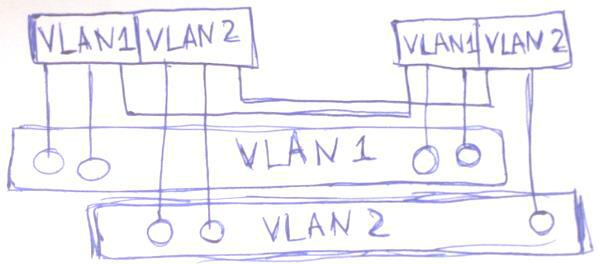 VLAN1 VLAN 2 VLAN1 VLAN 2
VLAN 1
VLAN 2